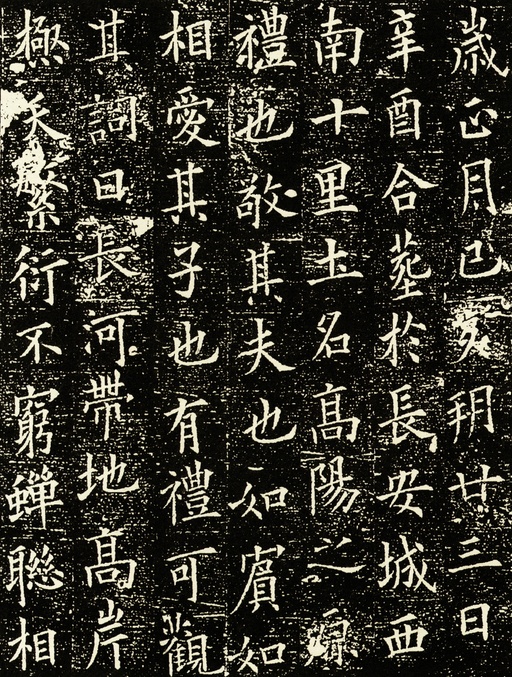 歲正月己亥朔廿三日
辛酉合葬於長安城西
南十里土名髙陽之原
禮也敬其夫也如賓如
相愛其子也有禮可觀
其詞曰長河帶地髙岸
極天繁衍不窮蟬聯相